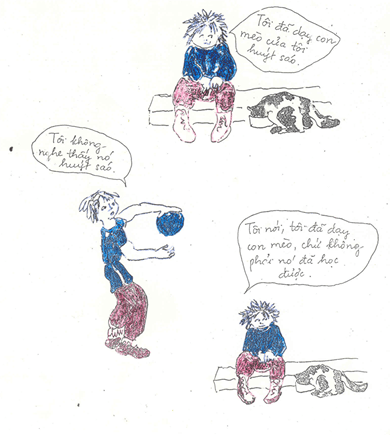 Tôi đã dạy con
mèo của tôi
huýt sáo.
Tôi không
nghe thấy nó
huýt sáo.
Tôi nói, tôi đã dạy
con mèo, chứ không
phải nó đã học
được.